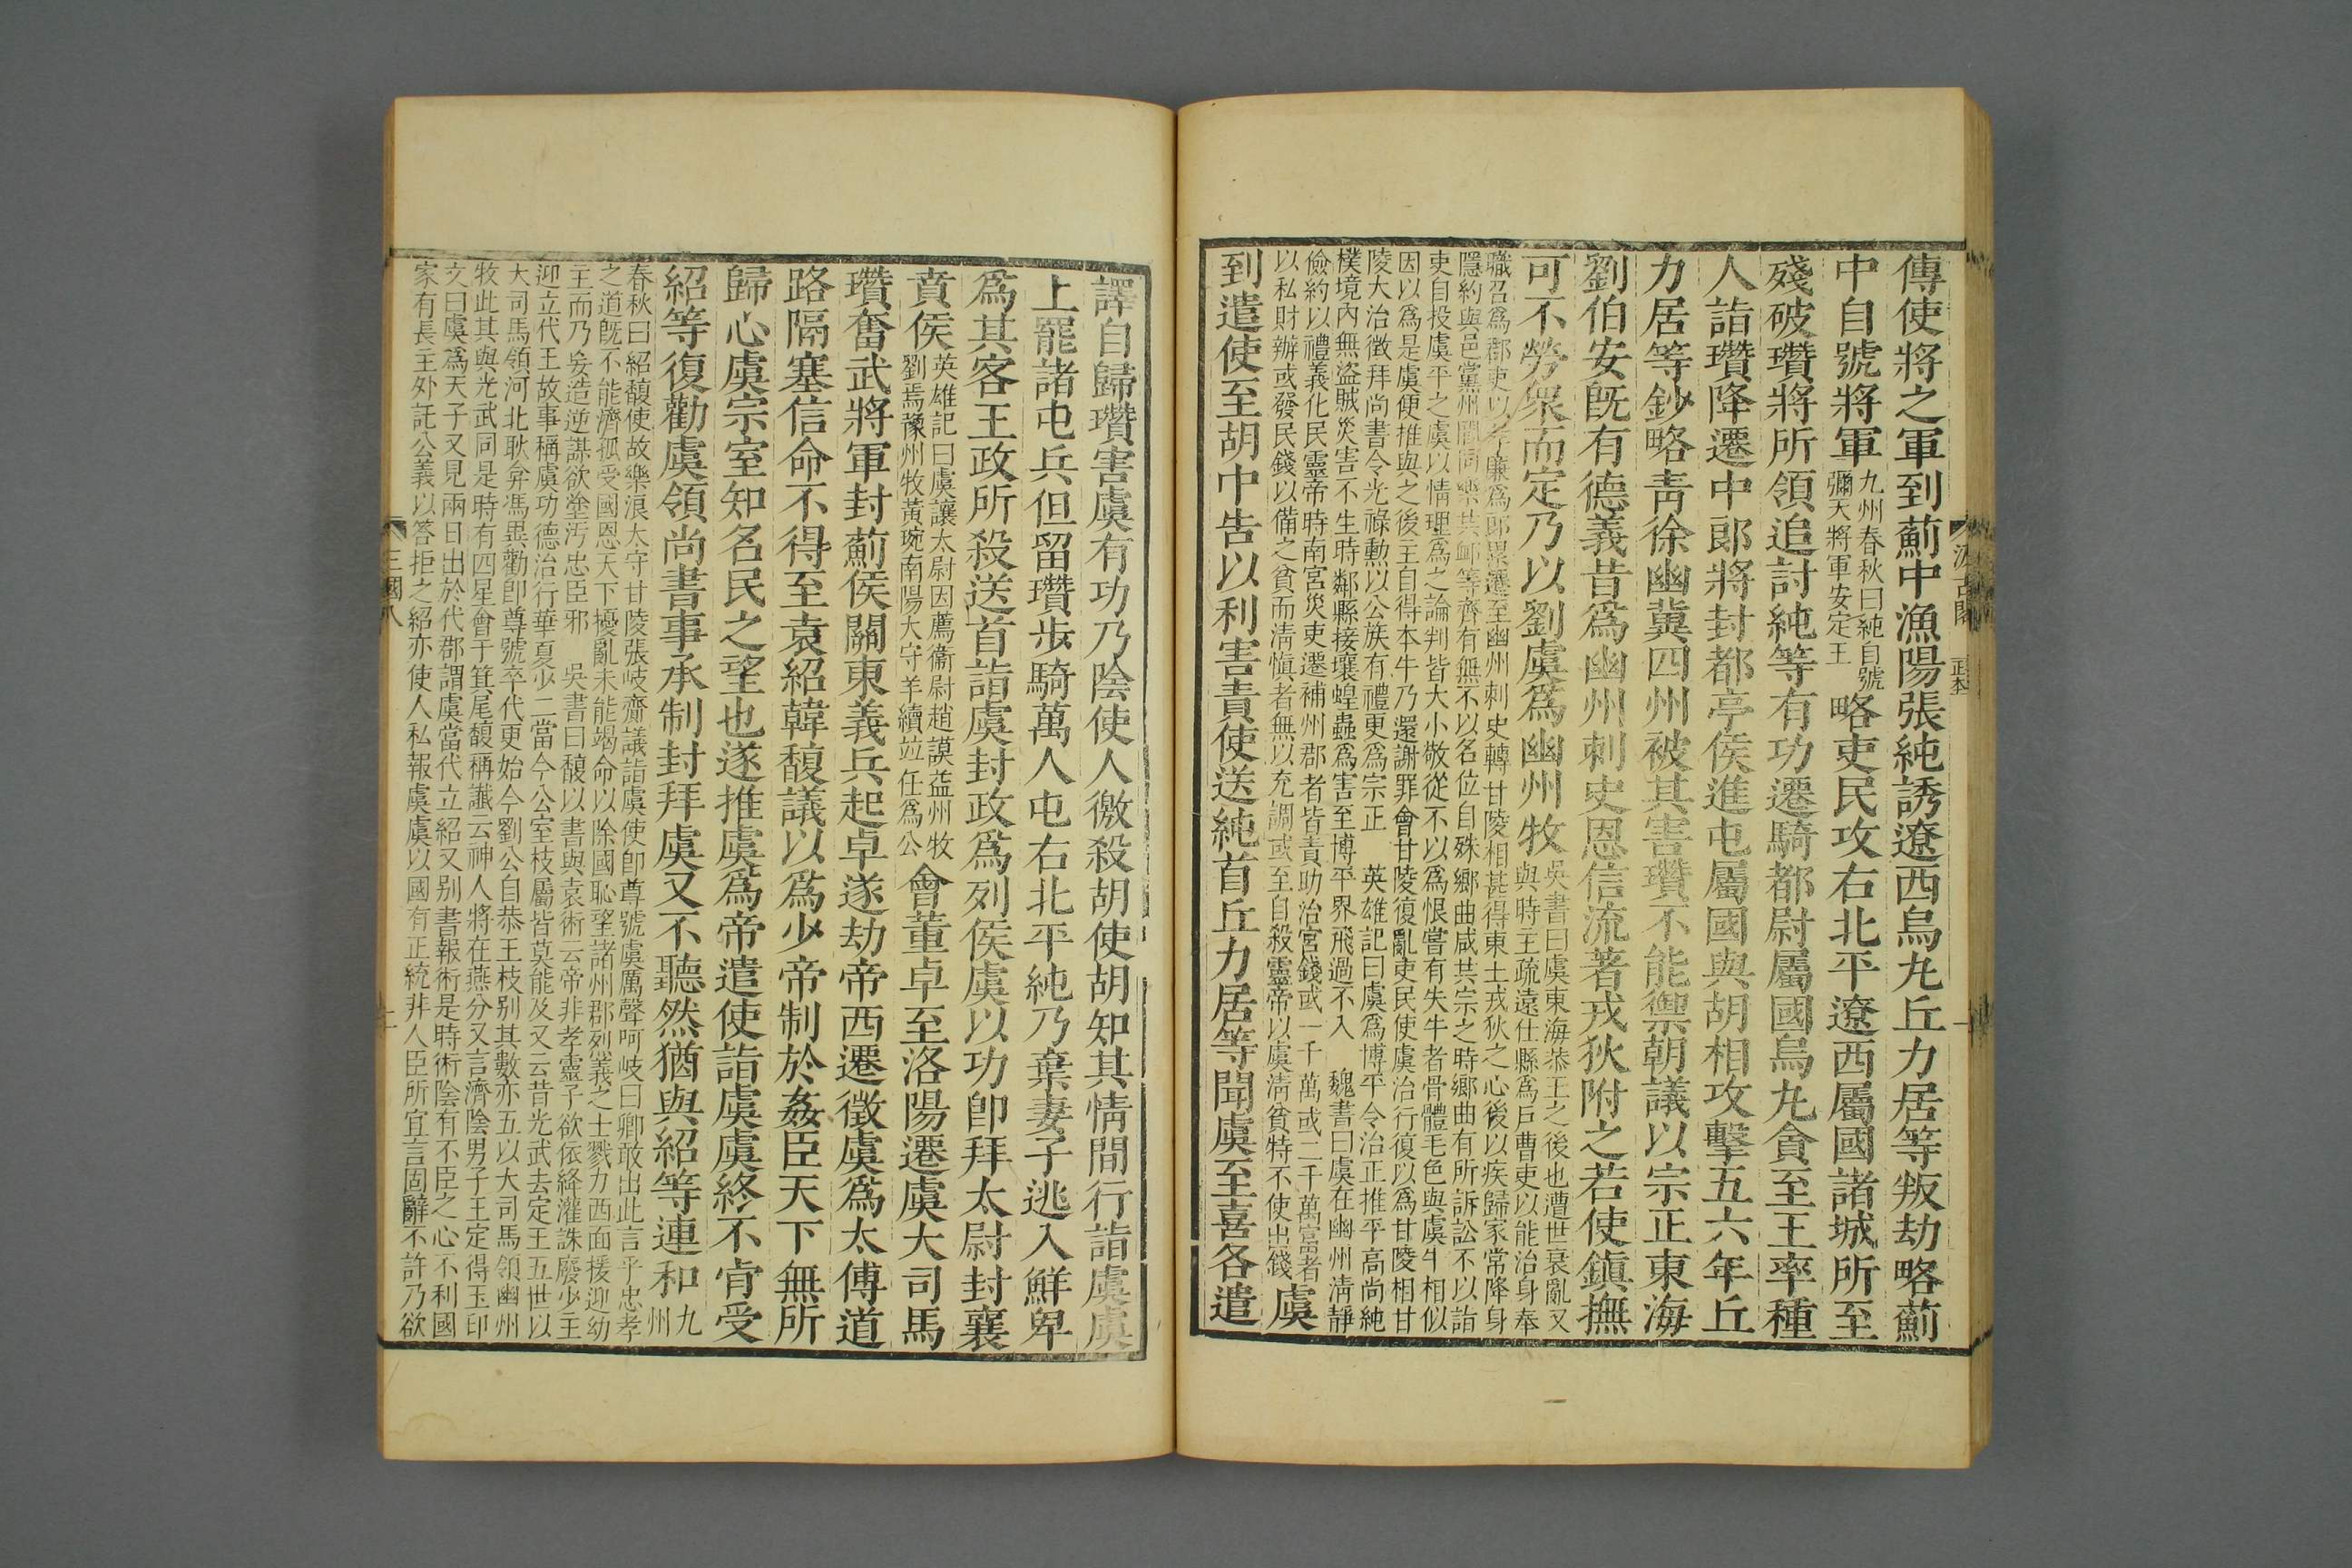 傳使將之軍到薊中漁陽張純誘遼西烏丸丘力居等叛劫略薊
中自號將軍
九州春秋曰純自號
彌天將軍安定王
略吏民攻右北平遼西屬國諸城所至
殘破瓚將所領追討純等有功遷騎都尉屬國烏丸貪至王率種
人詣瓚降遷中郎將封都亭侯進屯屬國與胡相攻擊五六年丘
力居等鈔略青徐幽冀四州被其害瓚不能禦朝議以宗正東海
劉伯安旣有德義昔爲幽州刺史恩信流著戎狄附之若使鎭撫
可不勞衆而定乃以劉虞爲幽州牧
吳書曰虞東海恭王之後也遭世衰亂又
與時主疏遠仕縣爲戶曹吏以能治身奉
職召爲郡吏以孝廉爲郎累遷至幽州刺史轉甘陵相甚得東土戎狄之心後以疾歸家常降身
隱約與邑黨州閭同樂共卹等齊有無不以名位自殊鄉曲咸共宗之時鄉曲有所訴訟不以詣
吏自投虞平之虞以情理爲之論判皆大小敬從不以爲恨嘗有失牛者骨體毛色與虞牛相似
因以爲是虞便推與之後主自得本牛乃還謝罪會甘陵復亂吏民使虞治行復以爲甘陵相甘
陵大治徵拜尚書令光祿勳以公族有禮更爲宗正　英雄記曰虞爲博平令治正推平高尚純
樸境內無盜賊災害不生時鄰縣接壤蝗蟲爲害至博平界飛過不入　魏書曰虞在幽州淸靜
儉約以禮義化民靈帝時南宮災吏遷補州郡者皆責助治宮錢或一千萬或二千萬富者
以私財辦或發民錢以備之貧而淸愼者無以充調或至自殺靈帝以虞淸貧特不使出錢
虞
到遣使至胡中告以利害責使送純首丘力居等聞虞至喜各遣
汲古閣
正本
譯自歸瓚害虞有功乃陰使人徼殺胡使胡知其情間行詣虞虞
上罷諸屯兵但留瓚步騎萬人屯右北平純乃棄妻子逃入鮮卑
爲其客王政所殺送首詣虞封政爲列侯虞以功卽拜太尉封襄
賁侯
英雄記曰虞讓太尉因薦衞尉趙謨益州牧
劉焉豫州牧黃琬南陽大守羊續竝任爲公
會董卓至洛陽遷虞大司馬
瓚奮武將軍封薊侯關東義兵起卓遂劫帝西遷徵虞爲太傅道
路隔塞信命不得至袁紹韓馥議以爲少帝制於姦臣天下無所
歸心虞宗室知名民之望也遂推虞爲帝遣使詣虞虞終不肯受
紹等復勸虞領尚書事承制封拜虞又不聽然猶與紹等連和
九
州
春秋曰紹馥使故樂浪太守甘陵張岐齎議詣虞使卽尊號虞厲聲呵岐曰卿敢出此言乎忠孝
之道旣不能濟孤受國恩天下擾亂未能竭命以除國恥望諸州郡烈義之士戮力西面援迎幼
主而乃妄造逆謀欲塗汚忠臣邪　吳書曰馥以書與袁術云帝非孝靈子欲依絳灌誅廢少主
迎立代王故事稱虞功德治行華夏少二當今公室枝屬皆莫能及又云昔光武去定王五世以
大司馬領河北耿弇馮異勸卽尊號卒代更始今劉公自恭王枝别其數亦五以大司馬領幽州
牧此其與光武同是時有四星會于箕尾馥稱讖云神人將在燕分又言濟陰男子王定得玉印
文曰虞爲天子又見兩日出於代郡謂虞當代立紹又别書報術是時術陰有不臣之心不利國
家有長主外託公義以答拒之紹亦使人私報虞虞以國有正統非人臣所宜言固辭不許乃欲
三國八